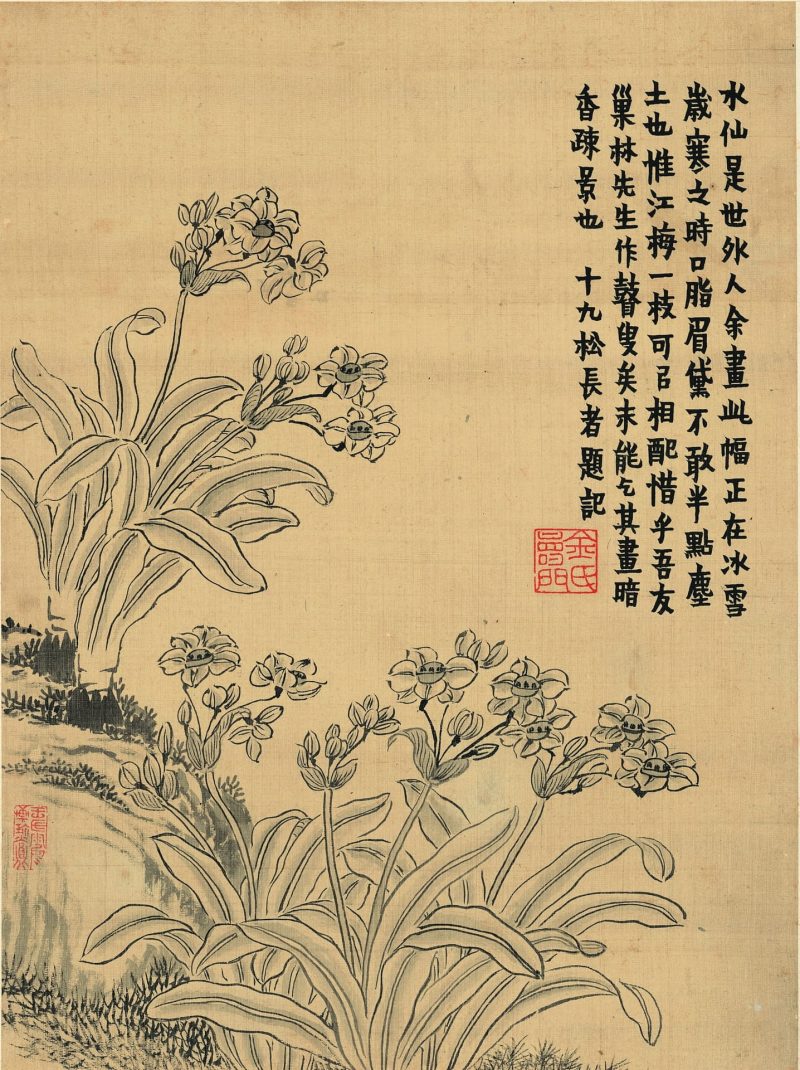 水仙是世外人余畫此幅正在冰雪
嵗寒之時口脂眉黛不敢半點塵
土也惟江梅一枝可㠯相配惜乎吾友
巢林先生作瞽叟矣未能乞其畫暗
香疎景也　十九松長者題記
金氏壽門